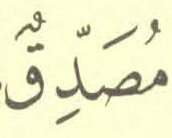 مُصَدِّقٌ